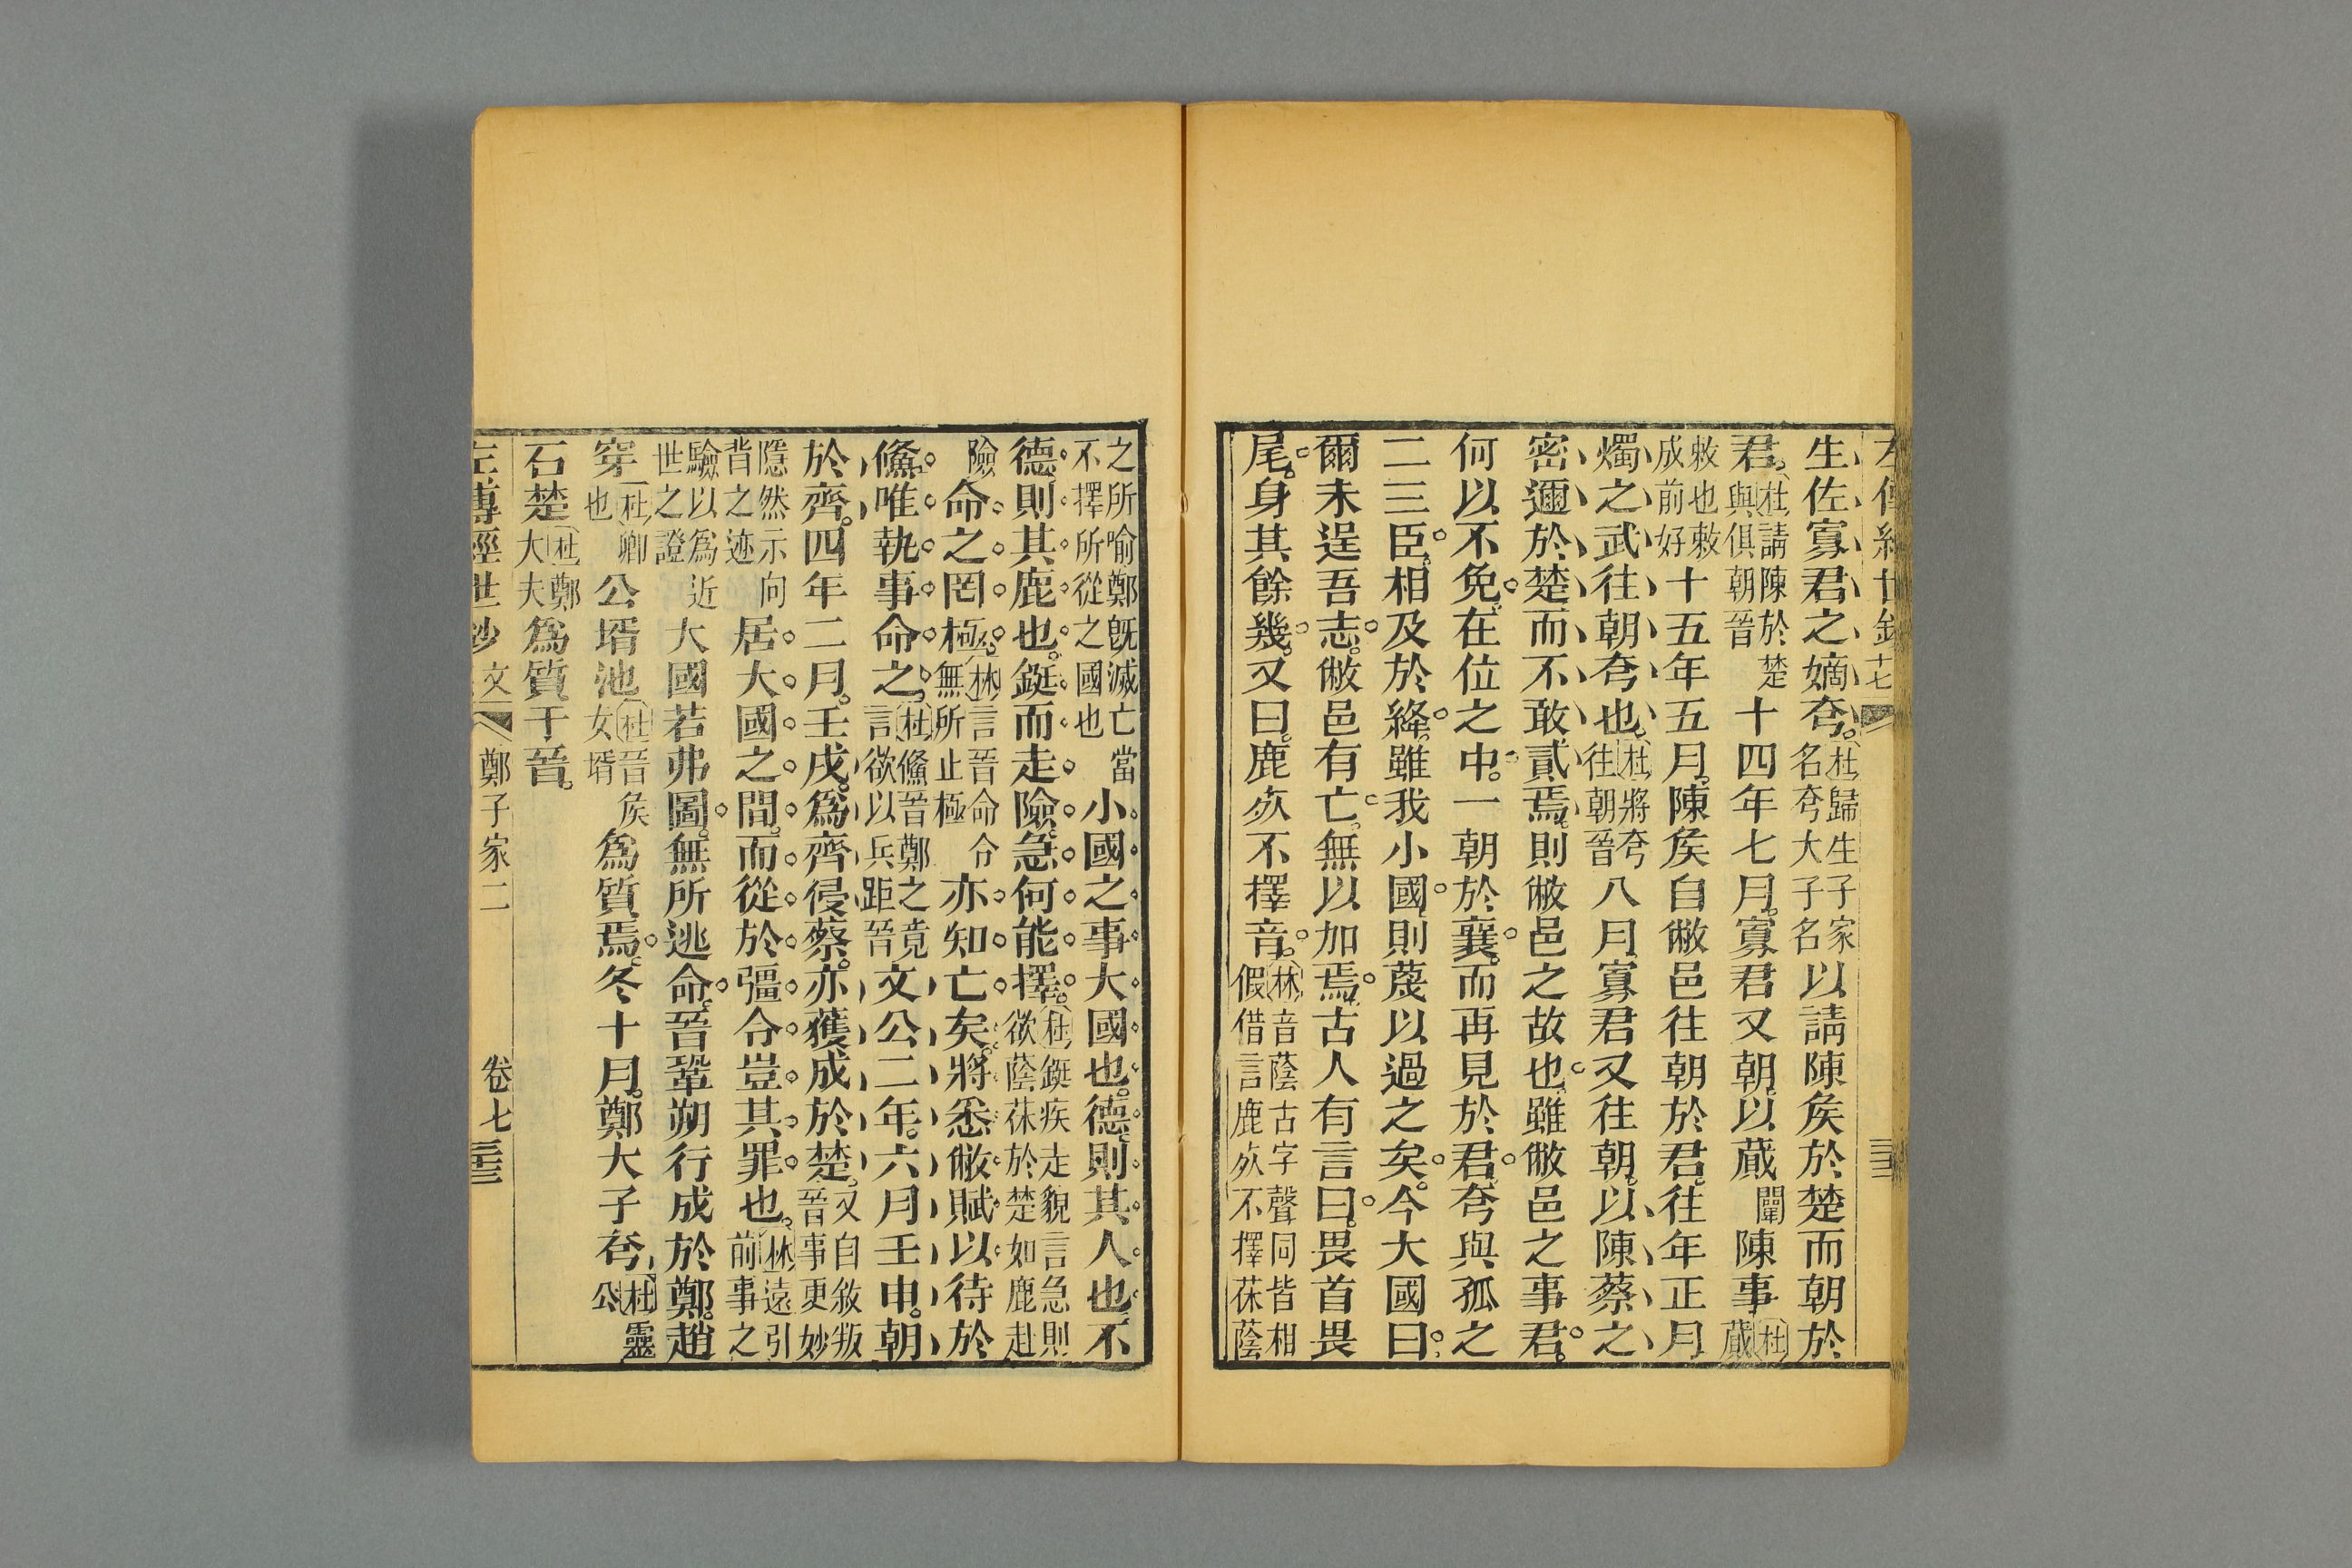 左傳經世鈔 十七 三三
生佐寡君之嫡夷。杜歸生子家名夷大子名以請陳矦於楚而朝於
君。杜請陳於楚與俱朝晉十四年七月。寡君又朝。以蕆闡陳事杜蕆
敕也敕成前好十五年五月。陳矦自敝邑往朝於君。往年正月
燭之武往朝夷也。杜將夷往朝晉八月。寡君又往朝。以陳蔡之
密邇於楚而不敢貳焉。則敝邑之故也。雖敝邑之事君。
何以不免。在位之中。一朝於襄。而再見於君。夷與孤之
二三臣。相及於絳。雖我小國。則蔑以過之矣。今大國曰。
爾未逞吾志。敝邑有亡。無以加焉。古人有言曰。畏首畏
尾。身其餘幾。又曰。鹿死不擇音。林音蔭古字聲同皆相假借言鹿死不擇茠蔭
之所喻鄭既滅亡當不擇所從之國也小國之事大國也。德則其人也。不
德。則其鹿也。鋌而走險。急何能擇。杜鋌疾走貌言急則欲蔭茠於楚如鹿赴
險命之罔極。林言晉命令無所止極亦知亡矣。將悉敝賦。以待於
鯈。唯執事命之。杜鯈晉鄭之竟言欲以兵距晉文公二年。六月壬申。朝
於齊。四年二月。壬戌。爲齊侵蔡。亦獲成於楚。又自敘叛晉事更妙
隱然示向背之迹居大國之間。而從於彊令。豈其罪也。林遠引前事之
驗以爲近世之證大國若弗圖。無所逃命。晉鞏朔行成於鄭。趙
穿杜卿也公壻池杜晉矦女壻爲質焉。冬十月。鄭大子夷杜靈公
石楚杜鄭大夫爲質于晉。
左傳經世鈔 文 鄭子家二 卷七 三三